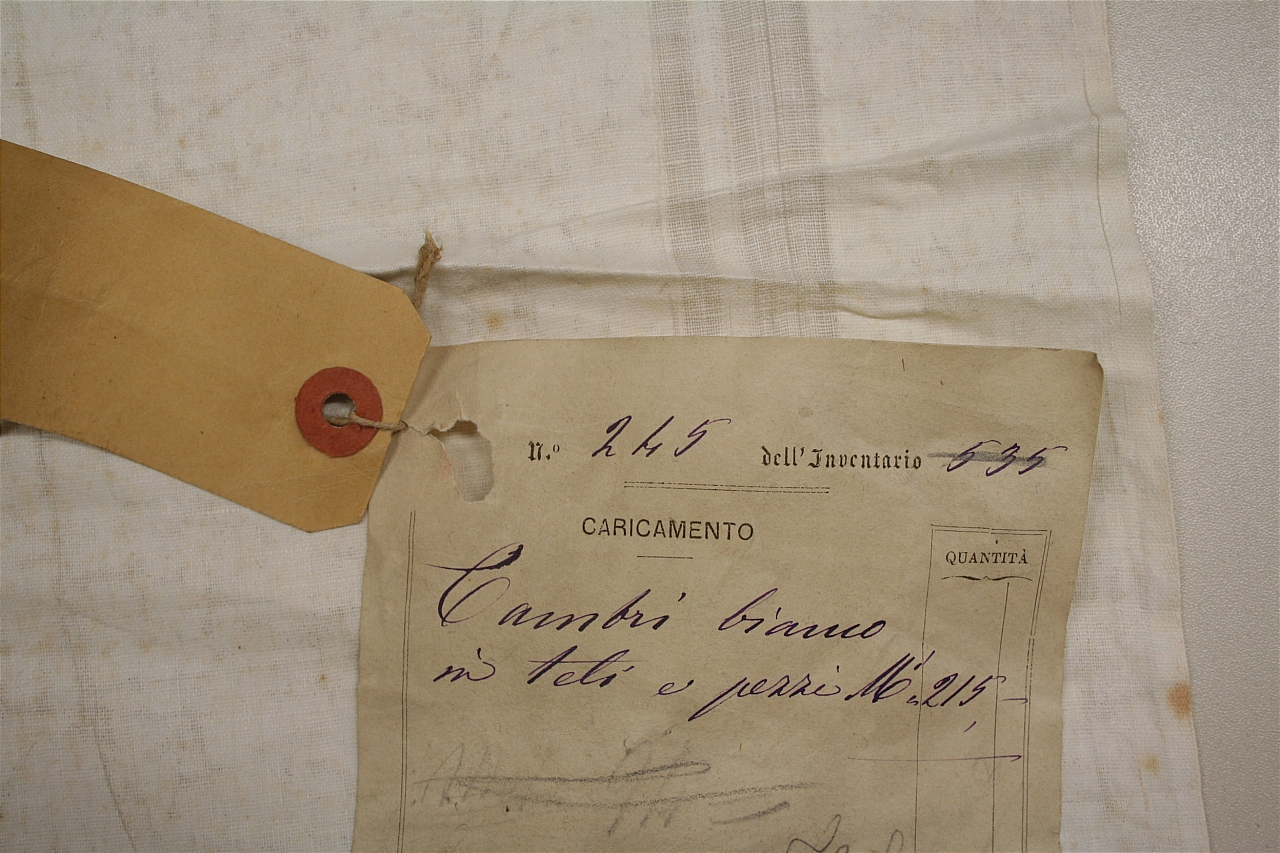 N.º 245 dell'Inventario 535
CARICAMENTO
QUANTITÀ
Cambri bianco
in teli e pezzi Mⁱ 215,—